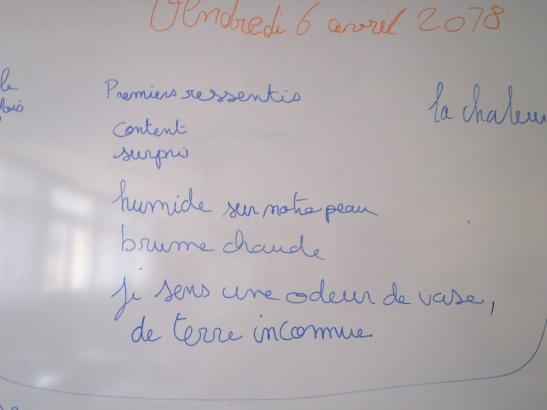 Vendredi 6 avril 2018
le
fois
Premiers ressentis
la chaleur
content
surpris
humide sur notre peau
brume chaude
je sens une odeur de vase,
de terre inconnue